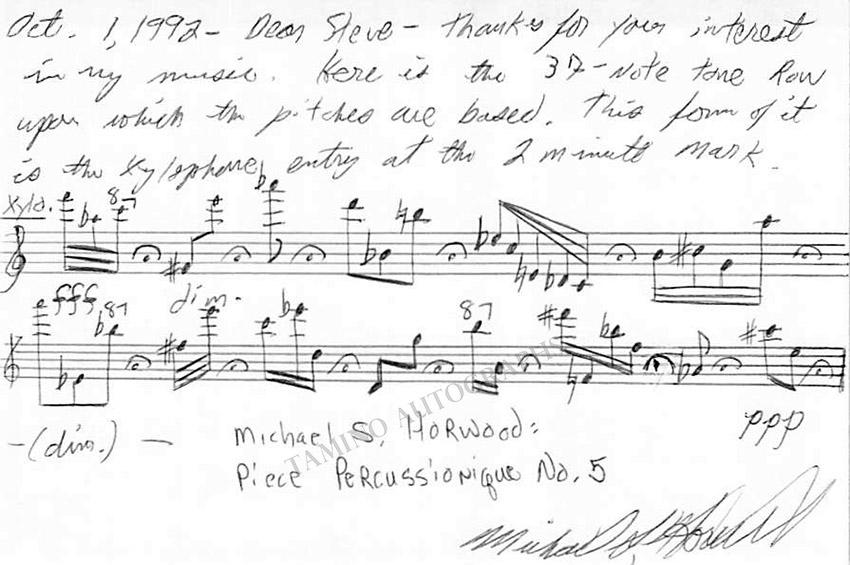 Oct. 1, 1992 – Dear Steve – Thanks for your interest
in my music. Here is the 37-note tone Row
upon which the pitches are based. This form of it
is the xylophone entry at the 2 minute mark.
Xylo.
fff
dim.
–(dim.) –
ppp
Michael S. Horwood:
Piece Percussionique No. 5
TAMINO AUTOGRAPHS
Michael S. Horwood